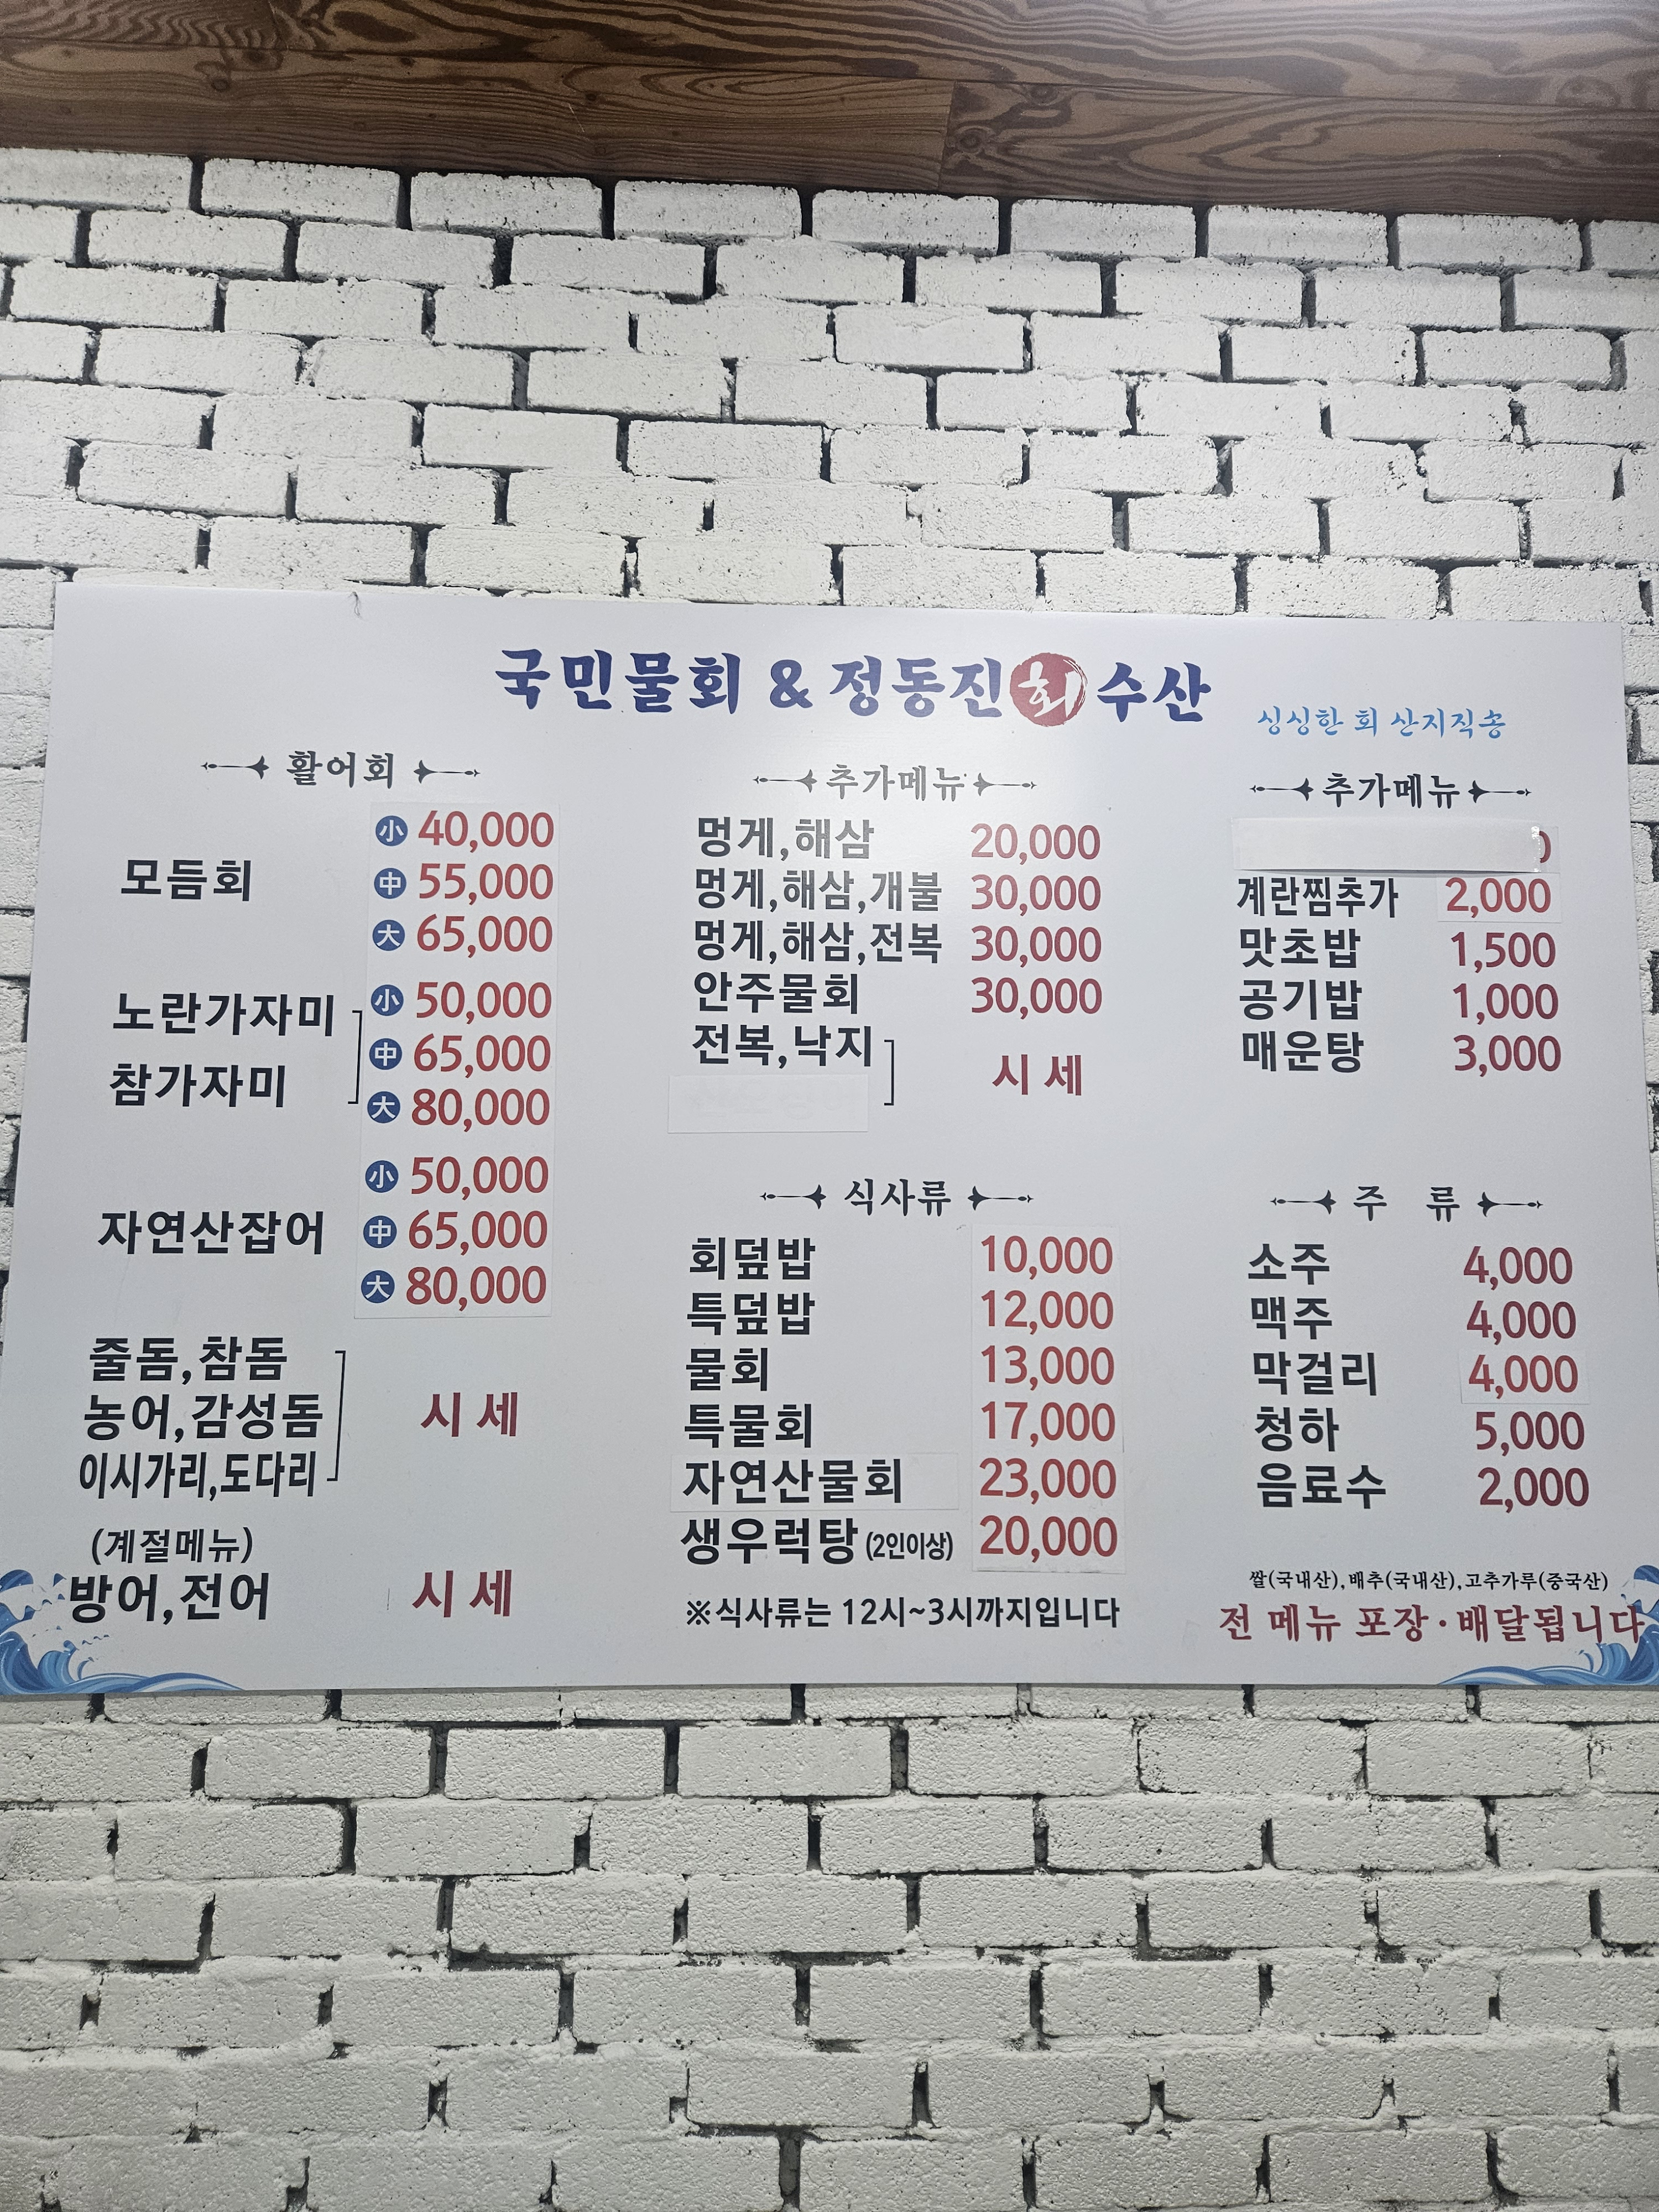 국민물회 & 정동진 회 수산
싱싱한 회 산지직송
활어회
모듬회
小 40,000
中 55,000
大 65,000
노란가자미
참가자미
小 50,000
中 65,000
大 80,000
자연산잡어
小 50,000
中 65,000
大 80,000
줄돔,참돔
농어,감성돔
이시가리,도다리
시세
(계절메뉴)
방어,전어 시세
추가메뉴
멍게,해삼 20,000
멍게,해삼,개불 30,000
멍게,해삼,전복 30,000
안주물회 30,000
전복,낙지 시세
식사류
회덮밥 10,000
특덮밥 12,000
물회 13,000
특물회 17,000
자연산물회 23,000
생우럭탕 (2인이상) 20,000
※식사류는 12시~3시까지입니다
추가메뉴
계란찜추가 2,000
맛초밥 1,500
공기밥 1,000
매운탕 3,000
주 류
소주 4,000
맥주 4,000
막걸리 4,000
청하 5,000
음료수 2,000
쌀(국내산),배추(국내산),고추가루(중국산)
전 메뉴 포장·배달됩니다